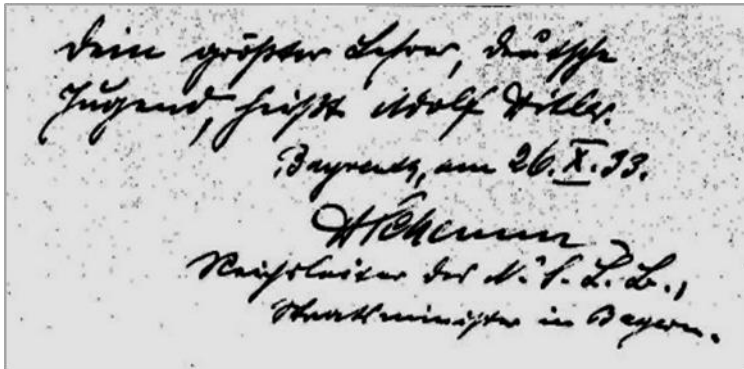 Dein größter Lehrer, deutsche
Jugend, heißt Adolf Hitler.
Bayreuth, am 26. X. 33.
HSchemm
Reichsleiter des N. S. L. B.,
Staatsminister in Bayern.